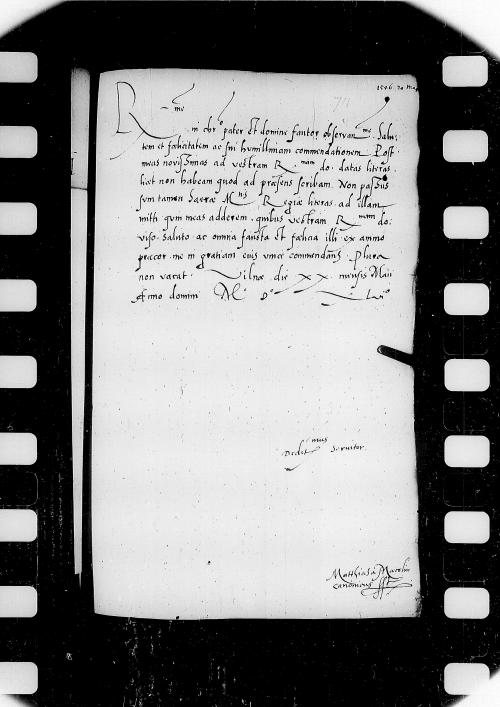 1546. 20 Maij
R.me
in chr.o pater et domine fautor observan.me Salu:
tem et fœlicitatem ac sui humillimam commendationem. Post
meas novissimas ad vestram R.mam do. datas literas,
licet non habeam quod ad præsens scribam. Non passus
sum tamen Sacræ M.tis Regiæ literas ad illam
mitti quin meas adderem. quibus vestram R.mam do:
viso. saluto. ac omnia fausta et fœlicia illi ex animo
præcor. me in gratiam eius unice commendans. Plura
non vacat. Vilnæ die XX mensis Maii
Anno domini M.o D.o
Dedit.mus Servitor.
Matthias a
canonicus